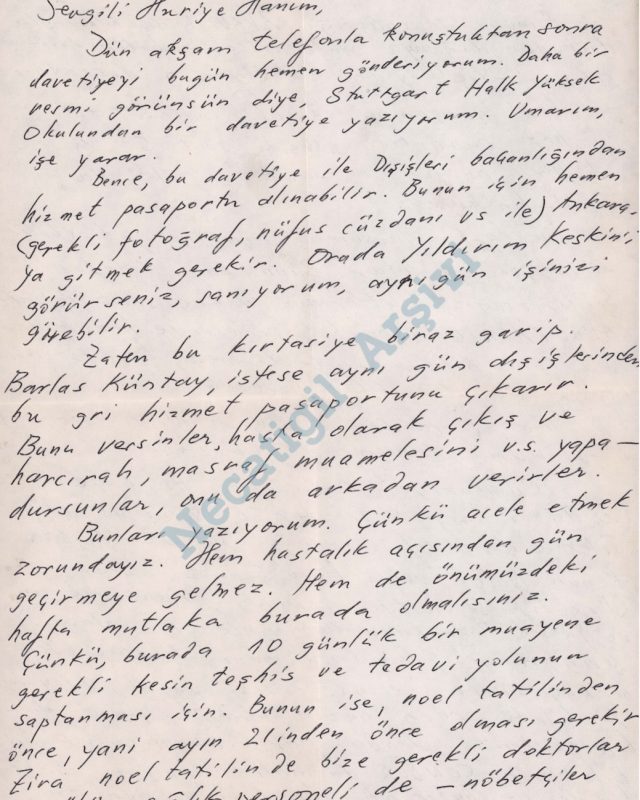 Sevgili Huriye Hanım,
Dün akşam telefonla konuştuktan sonra
davetiyeyi bugün hemen gönderiyorum. Daha bir
resmi görünsün diye, Stuttgart Halk Yüksek
Okulundan bir davetiye yazıyorum. Umarım,
işe yarar.
Bence, bu davetiye ile Dışişleri bakanlığından
hizmet pasaportu alınabilir. Bunun için hemen
(gerekli fotoğraf, nüfus cüzdanı vs ile) Ankara-
ya gitmek gerekir. Orada Yıldırım Keskin'i
görürseniz, sanıyorum, aynı gün işinizi
görebilir.
Zaten bu kırtasiye biraz garip.
Barlas Küntay, istese aynı gün dışişlerinden
bu gri hizmet pasaportunu çıkarır.
Bunu versinler, hasta olarak çıkış ve
harcırah, masraf muamelesini v.s. yapa-
dursunlar, onu da arkadan verirler.
Bunları yazıyorum. Çünkü acele etmek
zorundayız. Hem hastalık açısından gün
geçirmeye gelmez. Hem de önümüzdeki
hafta mutlaka burada olmalısınız.
Çünkü, burada 10 günlük bir muayene
gerekli kesin teşhis ve tedavi yolunun
saptanması için. Bunun ise, noel tatilinden
önce, yani ayın 21inden önce olması gerekir
Zira noel tatilinde bize gerekli doktorlar
personeli de – nöbetçiler
Necatigil Arşivi